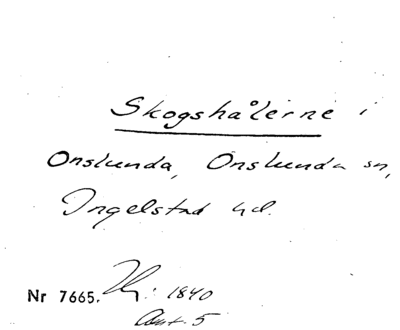 Skogshålerne i
Onslunda, Onslunda sn,
Ingelstad hd.
Nr 7665. : 1840
Ant. 5